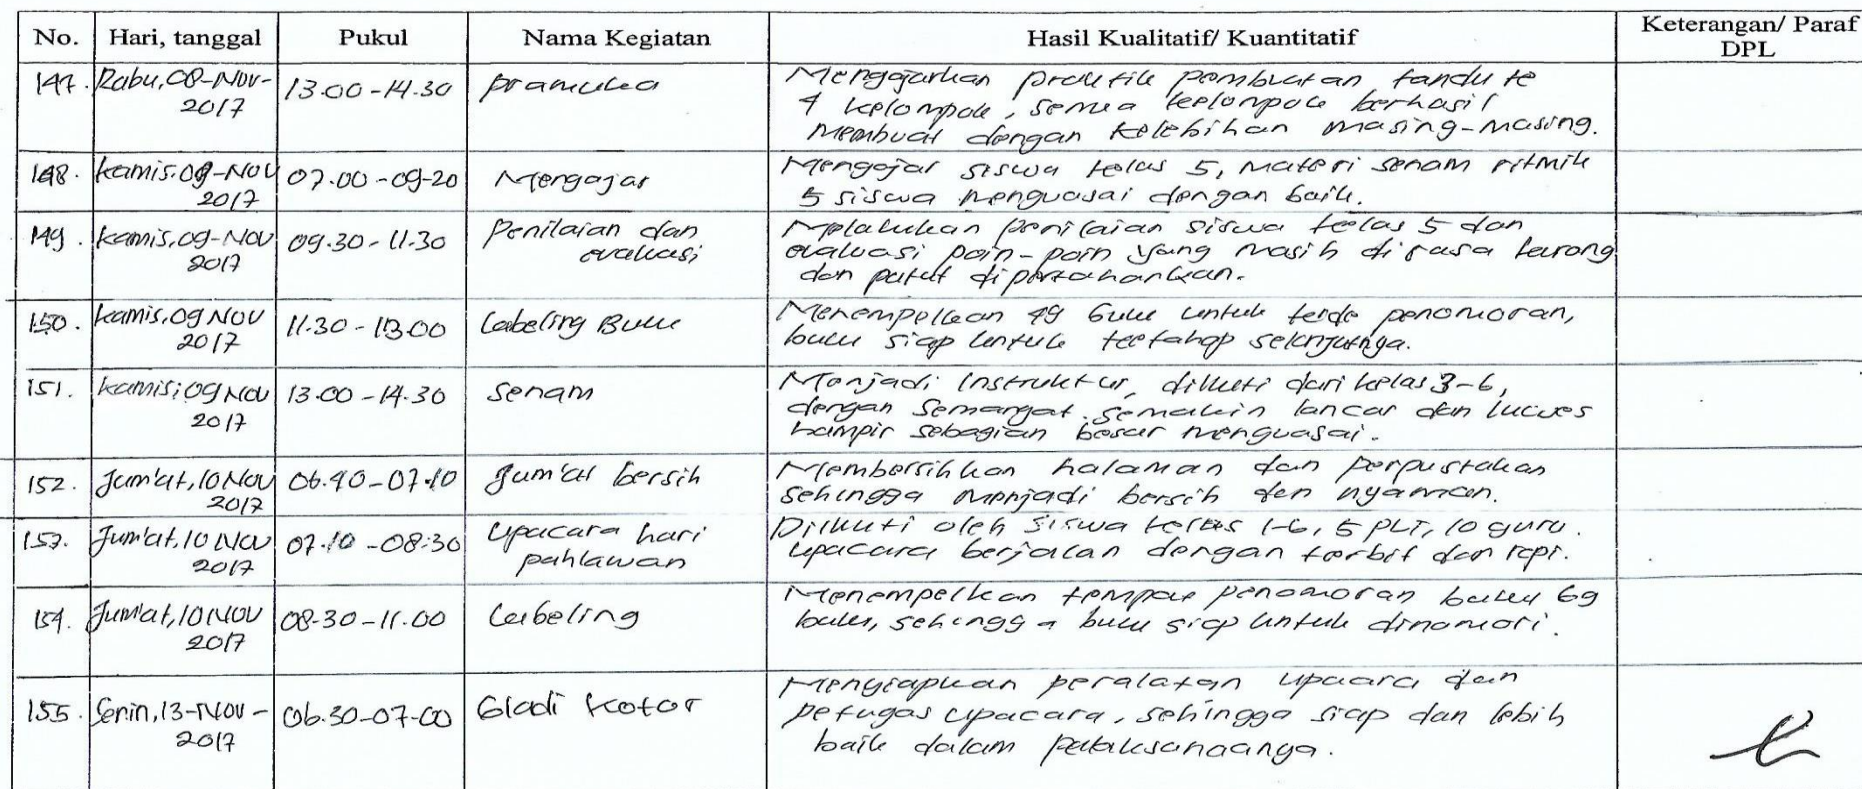 No. Hari, tanggal Pukul Nama Kegiatan Hasil Kualitatif/ Kuantitatif Keterangan/ Paraf DPL
147. Rabu, 08-Nov-2017 13.00-14.30 pramuka Mengajarkan praktik pembuatan tandu ke
4 kelompok, semua kelompok berhasil
membuat dengan kelebihan masing-masing.
148. Kamis, 09-Nov 2017 07.00-09-20 Mengajar Mengajar siswa kelas 5, materi senam ritmik
5 siswa menguasai dengan baik.
149. Kamis, 09-Nov 2017 09.30-11.30 Penilaian dan evaluasi Melakukan penilaian siswa kelas 5 dan
evaluasi poin-poin yang masih dirasa kurang
dan patut dipertahankan.
150. Kamis, 09 Nov 2017 11.30-13.00 Labeling Buku Menempelkan 49 buku untuk kode penomoran,
buku siap untuk ketahap selanjutnya.
151. Kamis, 09 Nov 2017 13.00-14.30 Senam Menjadi instruktur, diikuti dari kelas 3-6,
dengan semangat. semakin lancar dan luwes
hampir sebagian besar menguasai.
152. Jum'at, 10 Nov 2017 06.40-07.10 Jum'at bersih Membersihkan halaman dan perpustakan
sehingga menjadi bersih dan nyaman.
153. Jum'at, 10 Nov 2017 07.10-08:30 Upacara hari pahlawan Diikuti oleh siswa kelas 1-6, 5 PLT, 10 guru.
upacara berjalan dengan terbit dan rapi.
154. Jum'at, 10 Nov 2017 08.30-11.00 Labeling Menempelkan tempat penomoran buku 69
buku, sehingga buku siap untuk dinomori.
155. Senin, 13-Nov-2017 06.30-07-00 Gladi kotor Menyiapkan peralatan upacara dan
petugas upacara, sehingga siap dan lebih
baik dalam pelaksanaanya.